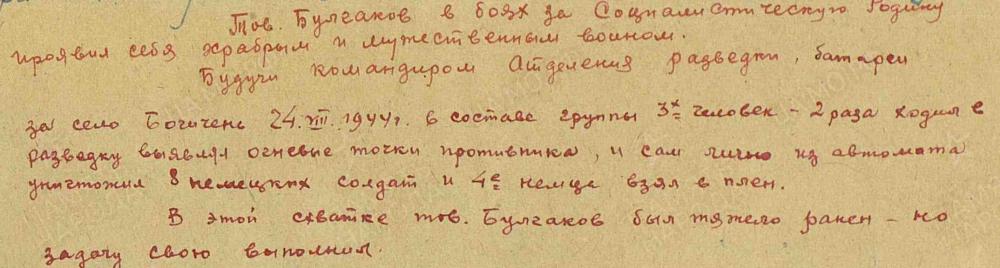 Тов. Булгаков в боях за Социалистическую Родину
проявил себя храбрым и мужественным воином.
Будучи командиром Отделения разведки, батареи
за село Богичень 24.VIII.1944г. в составе группы 3х человек - 2 раза ходил в
разведку выявлял огневые точки противника, и сам лично из автомата
уничтожил 8 немецких солдат и 4е немца взял в плен.
В этой схватке тов. Булгаков был тяжело ранен - но
задачу свою выполнил.